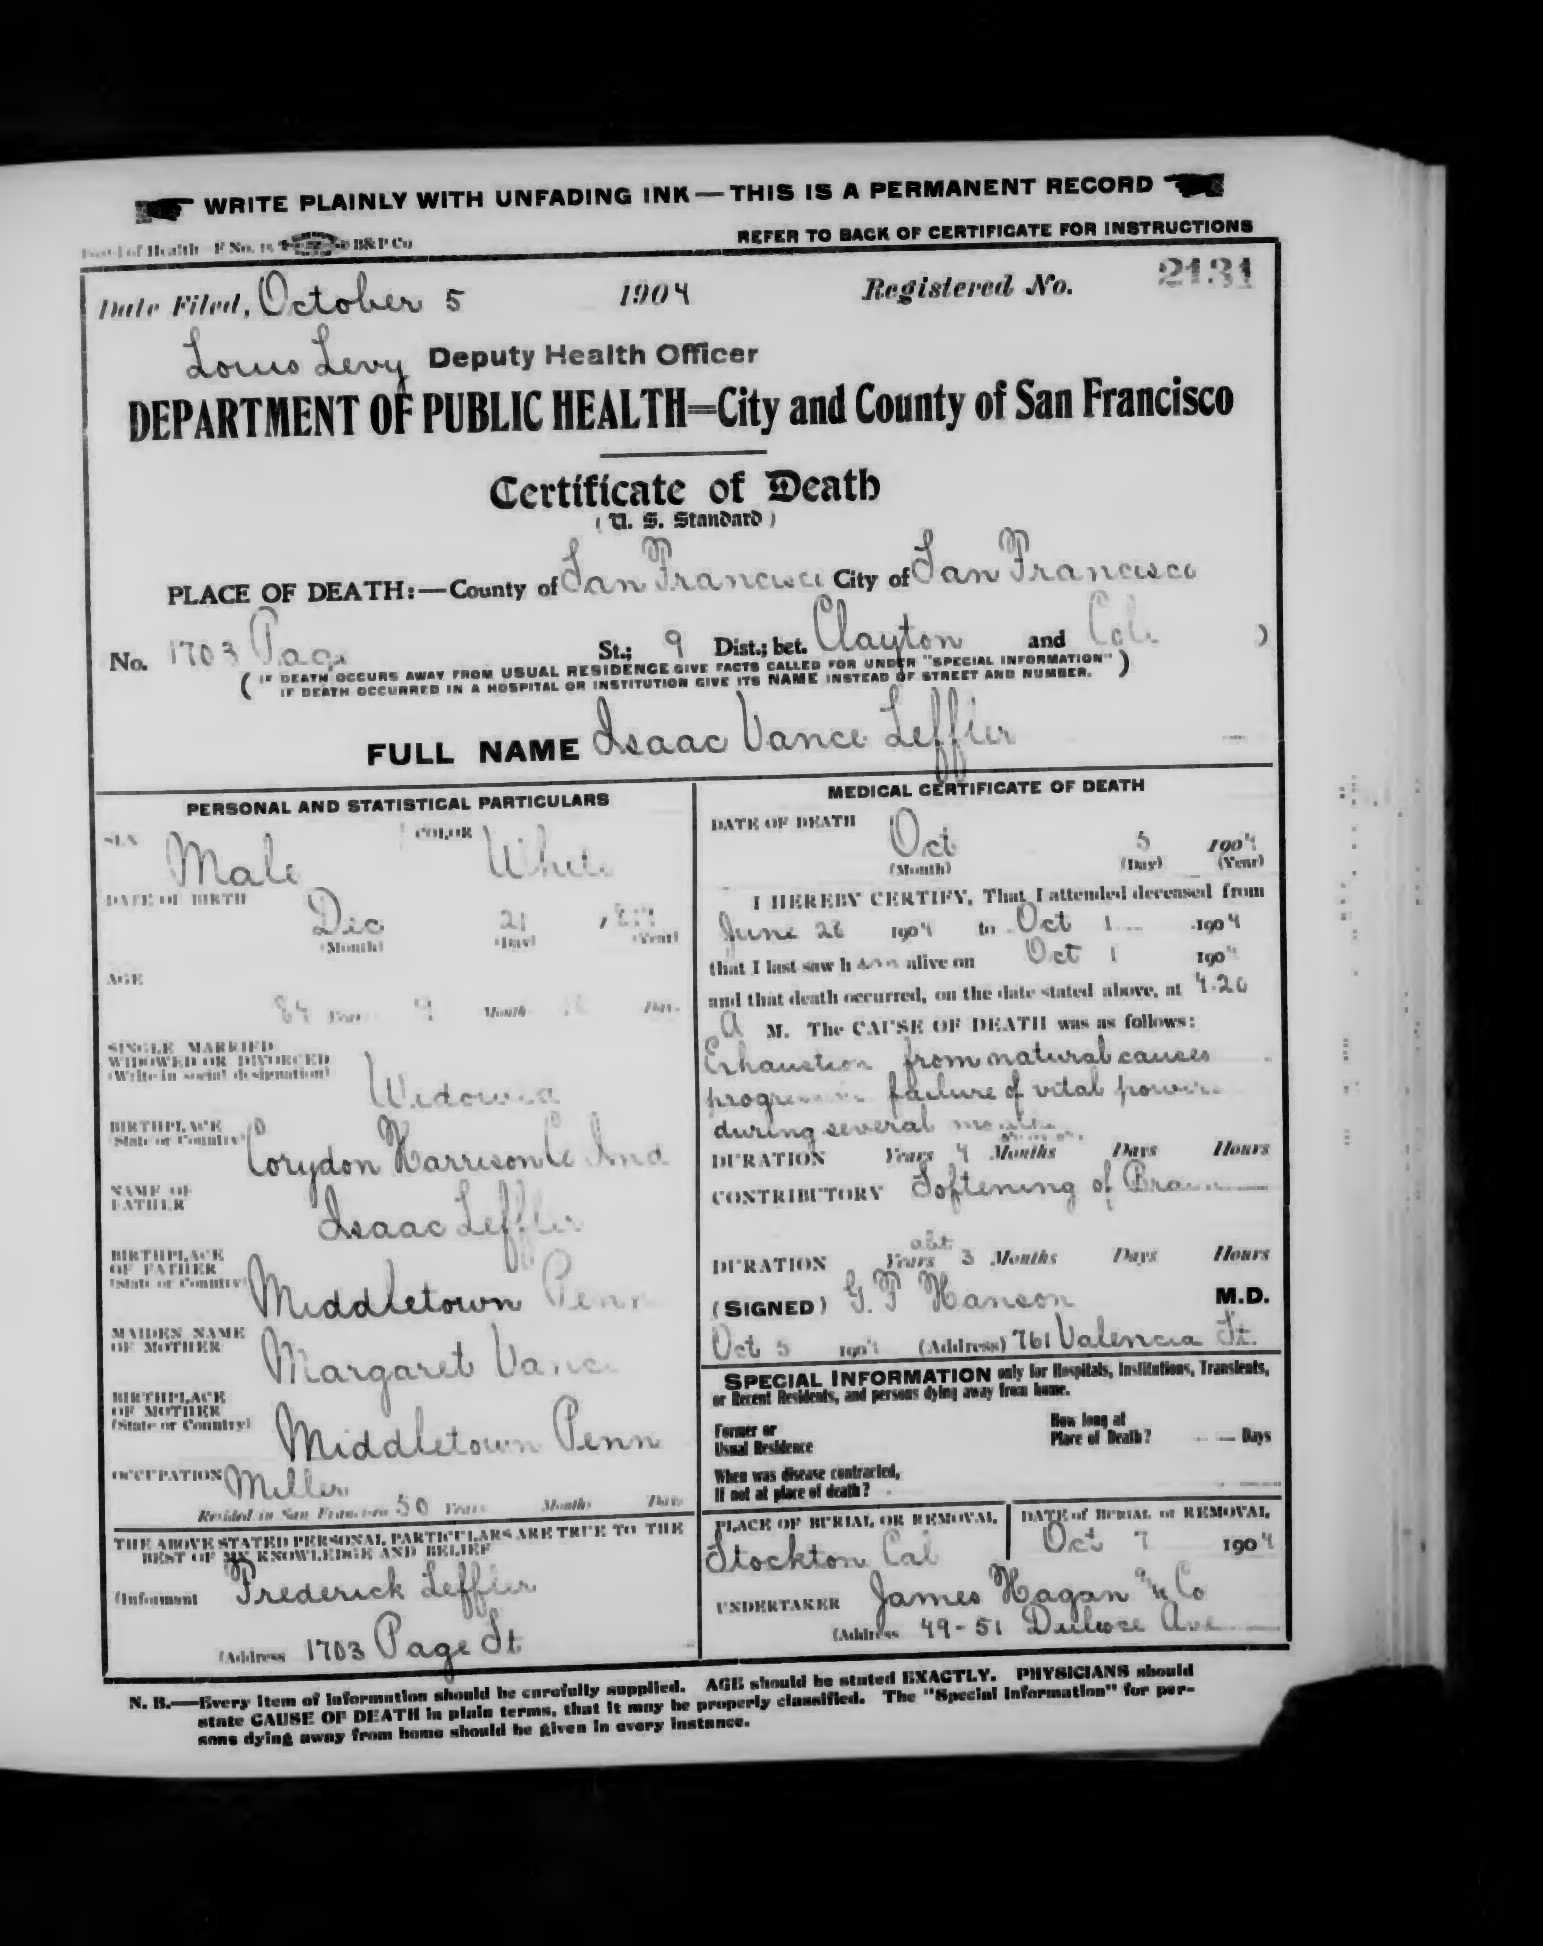 WRITE PLAINLY WITH UNFADING INK — THIS IS A PERMANENT RECORD
of Health F No. B&P Co
REFER TO BACK OF CERTIFICATE FOR INSTRUCTIONS
Date Filed, October 5 1904 Registered No. 2131
Louis Levy Deputy Health Officer
DEPARTMENT OF PUBLIC HEALTH=City and County of San Francisco
Certificate of Death
(U. S. Standard)
PLACE OF DEATH:—County of San Francisco City of San Francisco
No. 1703 Page St.; 9 Dist.; bet. Clayton and Cole )
( IF DEATH OCCURS AWAY FROM USUAL RESIDENCE GIVE FACTS CALLED FOR UNDER "SPECIAL INFORMATION" )
IF DEATH OCCURRED IN A HOSPITAL OR INSTITUTION GIVE ITS NAME INSTEAD OF STREET AND NUMBER.
FULL NAME Isaac Vance Leffler
PERSONAL AND STATISTICAL PARTICULARS
SEX Male COLOR White
DATE OF BIRTH Dec 21
(Month) (Day) (Year)
AGE
84 Years 9 Months Days
SINGLE MARRIED
WIDOWED OR DIVORCED
(Write in social designation) Widowed
BIRTHPLACE
(State or Country) Corydon Harrison Co Ind
NAME OF
FATHER Isaac Leffler
BIRTHPLACE
OF FATHER
(State or Country) Middletown Penn
MAIDEN NAME
OF MOTHER Margaret Vance
BIRTHPLACE
OF MOTHER
(State or Country) Middletown Penn
OCCUPATION Miller
Resided in San Francisco 50 Years Months Days
THE ABOVE STATED PERSONAL PARTICULARS ARE TRUE TO THE
BEST OF MY KNOWLEDGE AND BELIEF
(Informant Frederick Leffler
(Address 1703 Page St
MEDICAL CERTIFICATE OF DEATH
DATE OF DEATH Oct 5 1904
(Month) (Day) (Year)
I HEREBY CERTIFY, That I attended deceased from
June 28 1904 to Oct 1 1904
that I last saw h alive on Oct 1 1904
and that death occurred, on the date stated above, at 4.20
A M. The CAUSE OF DEATH was as follows:
Exhaustion from natural causes
progressive failure of vital powers
during several months
DURATION Years 4 Months Days Hours
CONTRIBUTORY Softening of Brain
abt
DURATION Years 3 Months Days Hours
(SIGNED) G. F Hanson M.D.
Oct 5 1904 (Address) 761 Valencia St.
SPECIAL INFORMATION only for Hospitals, Institutions, Transients,
or Recent Residents, and persons dying away from home.
Former or
Usual Residence
How long at
Place of Death? Days
When was disease contracted,
If not at place of death?
PLACE OF BURIAL OR REMOVAL
Stockton Cal
DATE of BURIAL or REMOVAL
Oct 7 1904
UNDERTAKER James Hagan & Co
(Address 49-51 Duboce Ave
N. B.—Every item of information should be carefully supplied. AGE should be stated EXACTLY. PHYSICIANS should
state CAUSE OF DEATH in plain terms, that it may be properly classified. The "Special Information" for per-
sons dying away from home should be given in every instance.